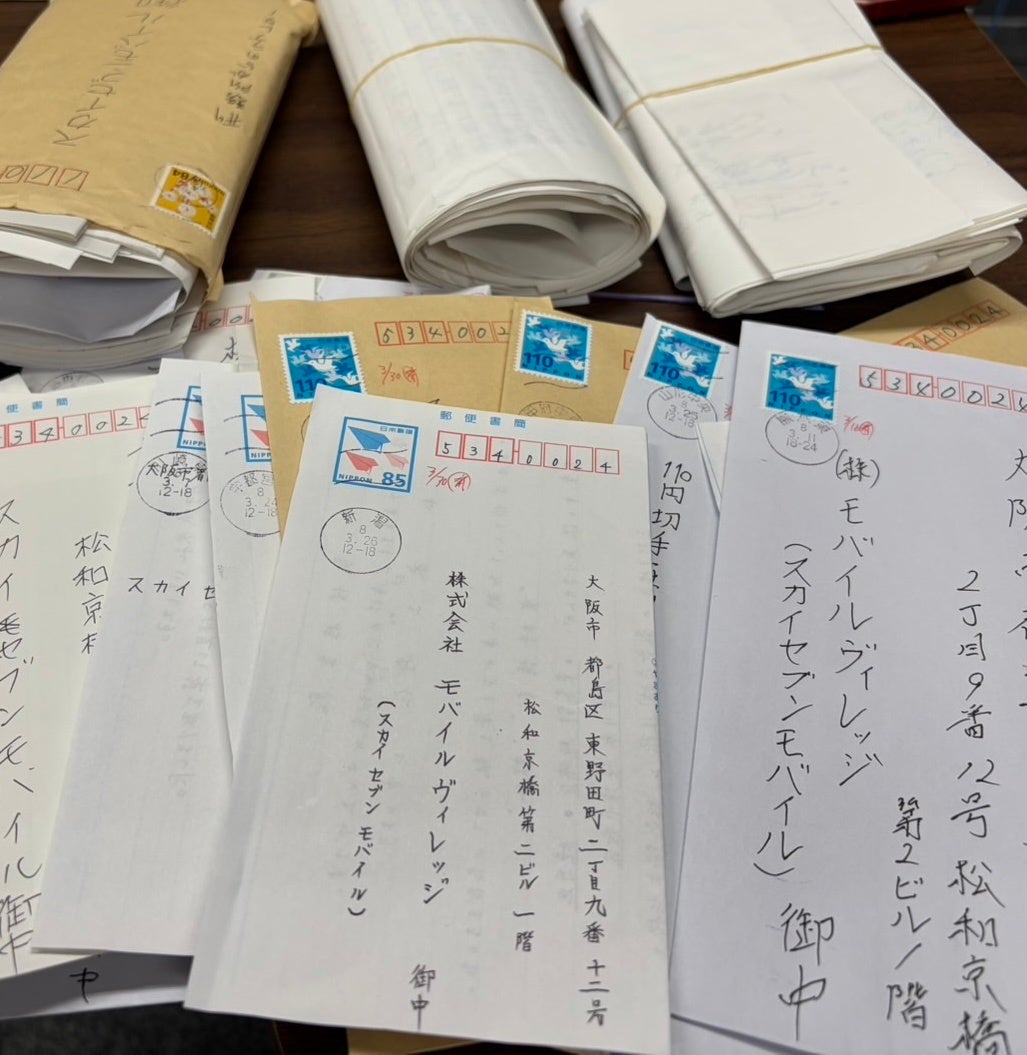 スカイセブンモバイル
077
534-002
3/30
110
110
110
110
534-0024
34-0024
便書簡
34-0024
スカイセブンモバイル御中
松和京
NIPPON
大阪市
3.
12-18
スカイセ
NIPPON
8
3.24
12-18
郵便書簡
日本郵便
NIPPON 85
534-0024
3/30
新潟
8
3.26
12-18
大阪市 都島区 東野田町 二丁目九番 十二号
松和京橋 第二ビル 一階
株式会社 モバイルヴィレッジ
(スカイセブン モバイル)
御中
山形中央
8
3.
110円切手
8
3.11
18-24
2丁目9番12号 松和京橋
第2ビル1階
(株)モバイルヴィレッジ
(スカイセブンモバイル) 御中
中